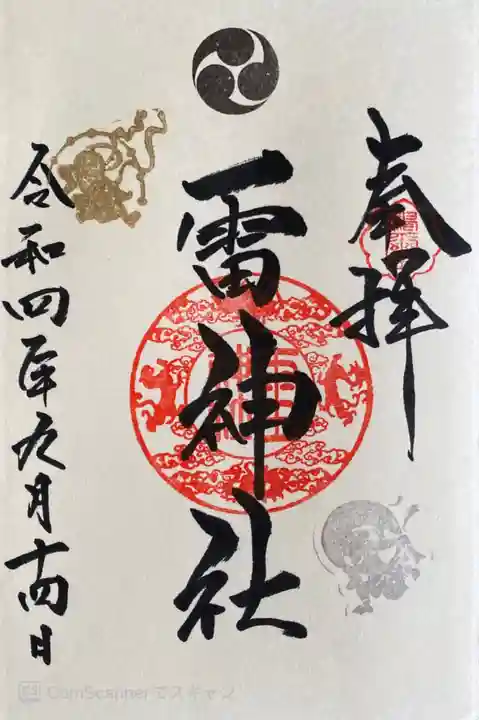 奉拝
雷神社
令和四年九月十四日
CS CamScannerでスキャン